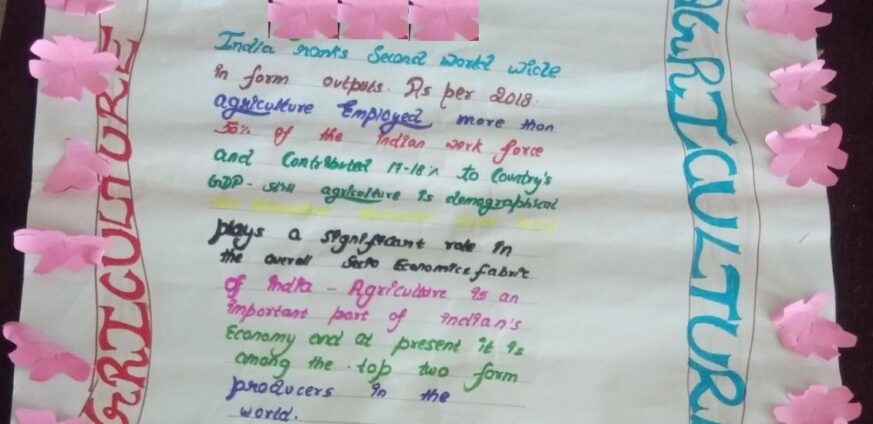 India ranks Second world wide
in form outputs. As per 2018.
agriculture Employed more than
50% of the indian work force
and Contributed 17-18% to Country's
GDP- still agriculture is demographical
plays a significant role in
the overall Socio Economics fabric
of india - Agriculture is an
important part of indian's
Economy and at present it is
among the top two form
producers in the
world.
GRICULTURE
GRICULTUR